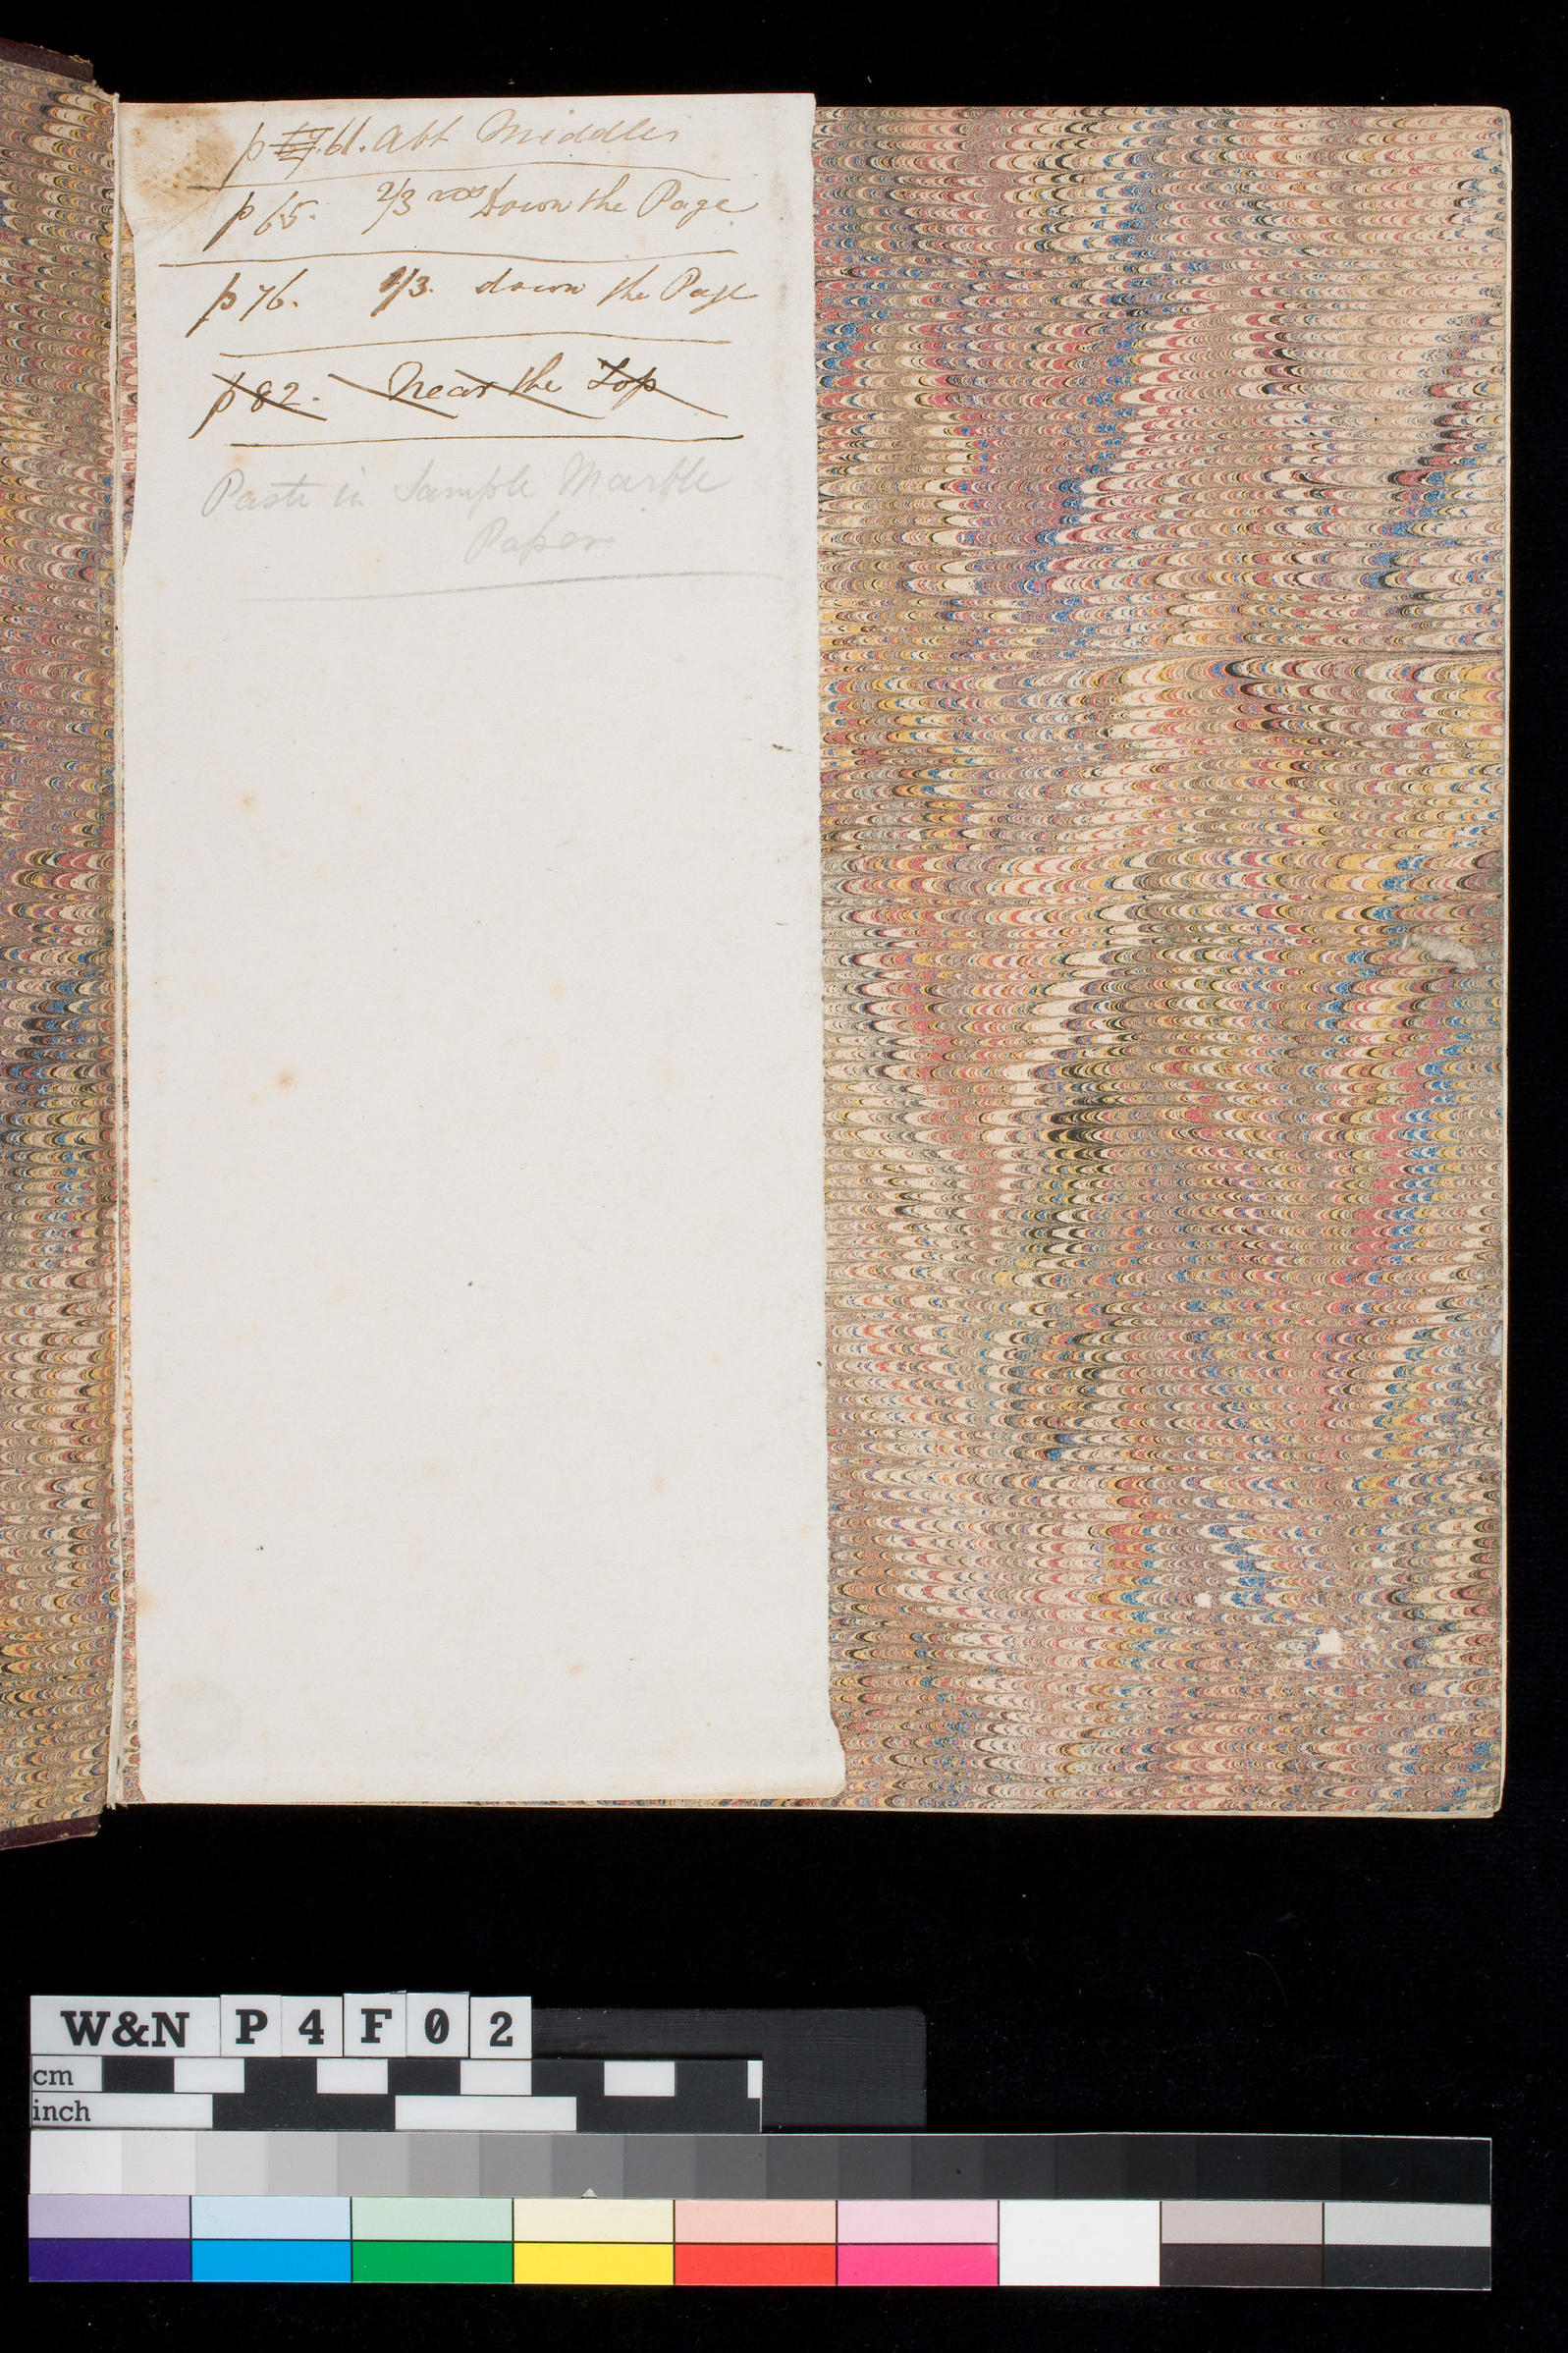 p 61. abt Middle
p 65. 2/3 rds Down the Page
p 76. 1/3. down the Page
p 82. Near the Top
Paste in Sample Marble
Paper
W&N P4F02
cm
inch